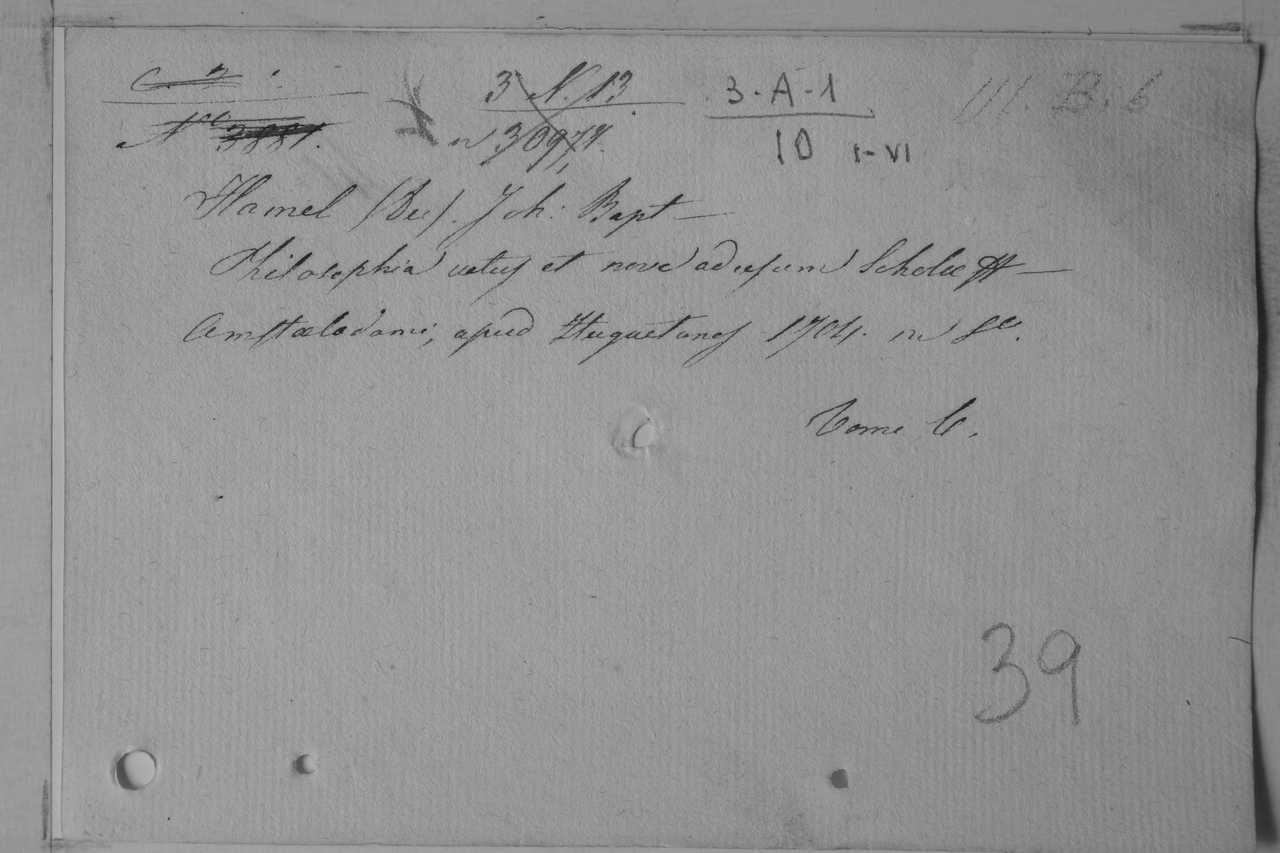 3 N. 13 3-A-1 III. B. 6
10 I-VI
Hamel (Du). Joh: Bapt
Philosophia vetus et nova ad usum Scholæ
Amstælodami, apud Huguetanos 1704. in 8º.
Tome 6.
39